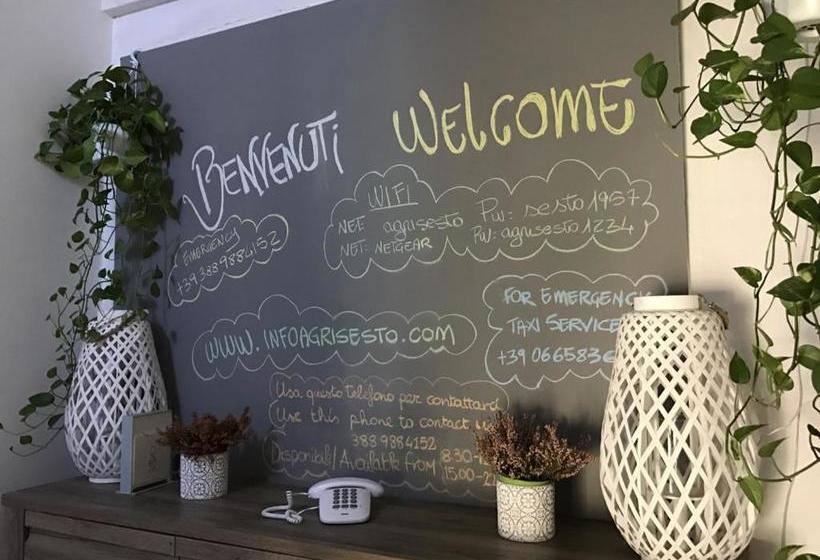 BENVENUTI
WELCOME
WIFI
NET: agrisesto Pw: sesto1957
NET: NETGEAR Pw: agrisesto1234
EMERGENCY
+393889884152
WWW.INFOAGRISESTO.COM
FOR EMERGENCY
TAXI SERVICE
+39 0665836
Usa questo telefono per contattarci
Use this phone to contact us
3889884152
Disponibili/Available from 8:30-12
15:00-2